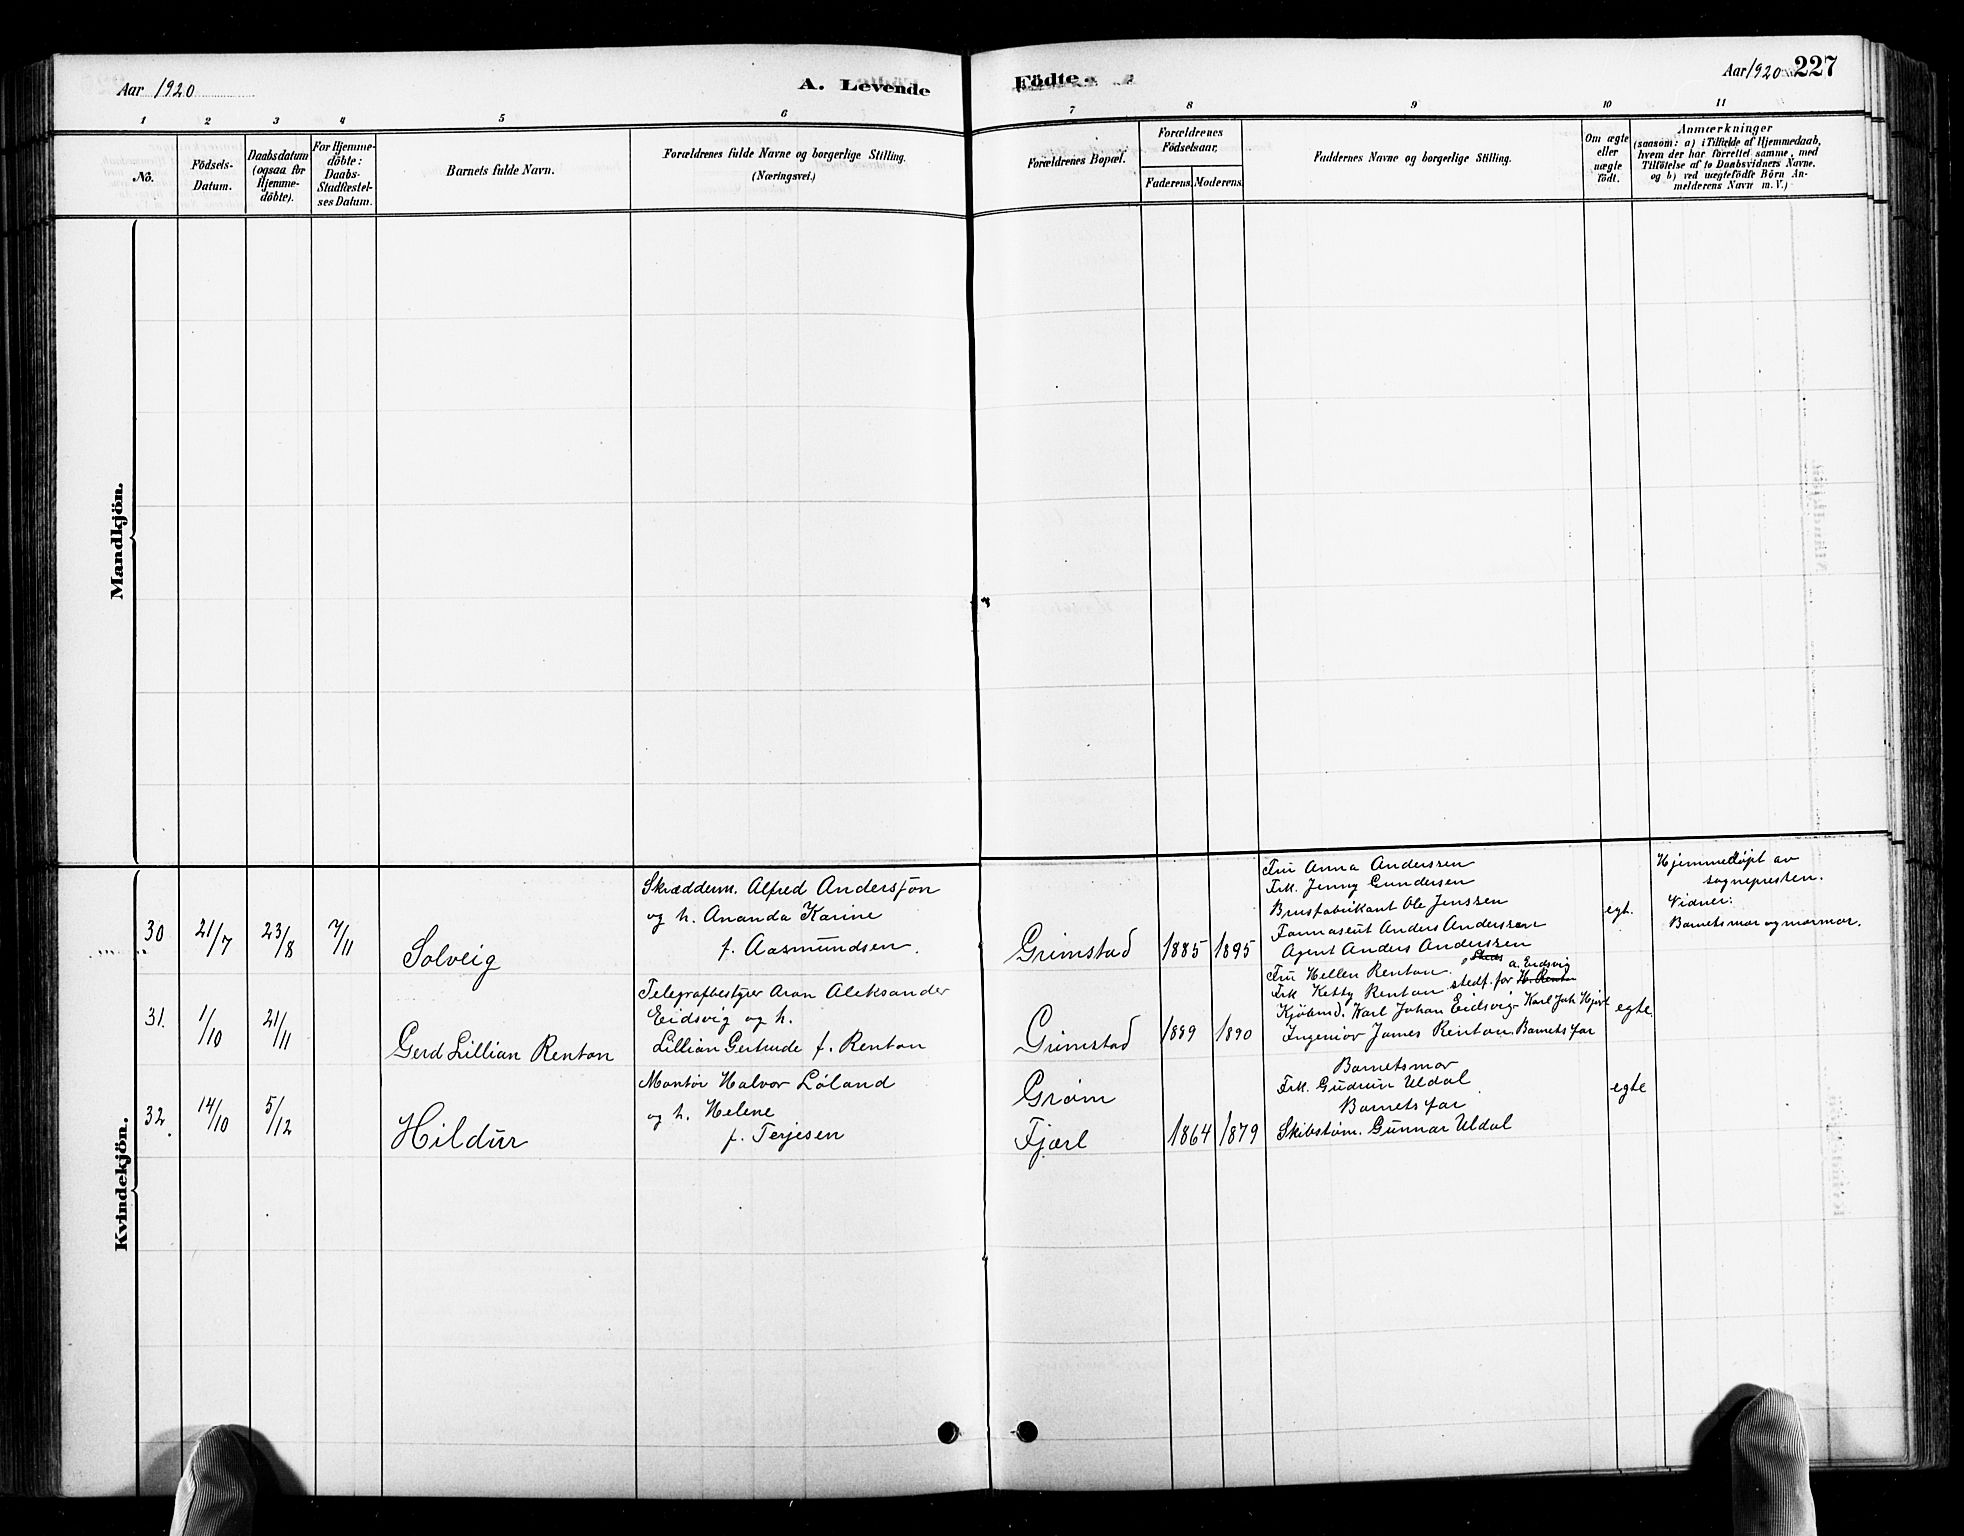 Aar 1920
A. Levende
Födte.
Aar 1920 227
1 2 3 4 5 6 7 8 9 10 11
No.
Födsels-
Datum.
Daabsdatum
(ogsaa for
Hjemme-
döbte).
For Hjemme-
döbte:
Daabs-
Stadfæstel-
ses Datum.
Barnets fulde Navn.
Forældrenes fulde Navne og borgerlige Stilling.
(Næringsvei.)
Forældrenes Bopæl.
Forældrenes
Födselsaar,
Faderens. Moderens.
Faddernes Navne og borgerlige Stilling.
Om ægte
eller
uægte
födt.
Anmærkninger
(saasom: a) i Tilfælde af Hjemmedaab,
hvem der har forrettet samme, med
Tilföielse af to Daabsvidners Navne.
og b) ved uægtefödte Börn An-
melderens Navn m. V.)
Mandkjön.
Kvindekjön.
30 21/7 23/8 7/11
Solveig
Skrædderm. Alfred Andersson
og h. Ananda Karine
f. Aasmundsen.
Grimstad 1885 1895
Fru Anna Anderssen
Frk. Jenny Gundersen
Brusfabrikant Ole Jenssen
Farmaseut Anders Anderssen
Agent Anders Anderssen
egt.
Hjemmedøpt av
sognepresten.
Vidner:
Barnets mor og mormor.
31. 1/10 21/11
Gerd Lillian Renton
Telegrafbestyrer Aron Aleksander
Eidsvig og h.
Lillian Gertrude f. Renton
Grimstad 1889 1890
Fru Hellen Renton.
a. Eidsvig
Frk Ketty Renton stedf. for H. Renton
Kjøbmd. Karl Johan Eidsvig Karl Joh
Ingeniør James Renton Barnets far
egte.
32. 14/10 5/12
Hildur
Montør Halvor Løland
og h. Helene
f. Terjesen
Grøm
Fjærl 1864 1879
Barnets mor
Frk. Gudrun Uldal
Barnets far
Skibstøm. Gunnar Uldal
egte